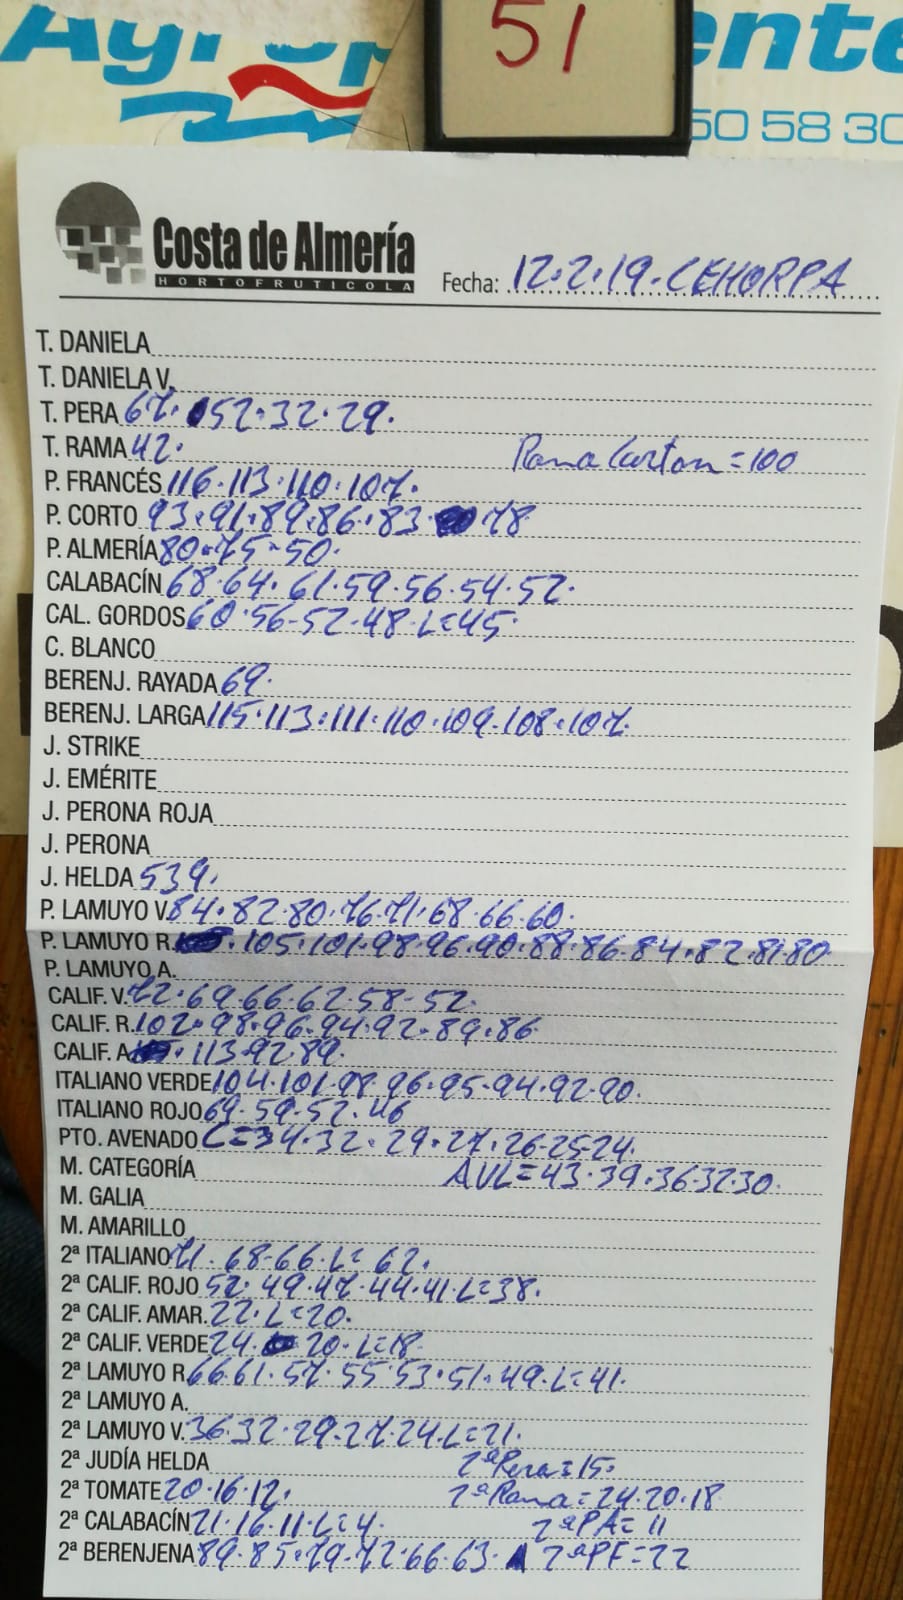 51
50 58 30
Costa de Almería
HORTOFRUTICOLA
Fecha: 12.2.19.CEHORPA
T. DANIELA
T. DANIELA V.
T. PERA 67. 52.32.29.
T. RAMA 42. Rama Carton = 100
P. FRANCÉS 116.113.110.107.
P. CORTO 93.91.89.86.83 78
P. ALMERÍA 80.75-50.
CALABACÍN 68.64.61.59.56.54.52.
CAL. GORDOS 60.56-52-48-L=45.
C. BLANCO
BERENJ. RAYADA 69.
BERENJ. LARGA 115.113.111.110.109.108.107.
J. STRIKE
J. EMÉRITE
J. PERONA ROJA
J. PERONA
J. HELDA 539.
P. LAMUYO V. 84.82.80.76.71.68.66.60.
P. LAMUYO R. 105.101.98.96.90.88.86.84.82.81.80.
P. LAMUYO A.
CALIF. V. 72.69.66.62.58-52.
CALIF. R. 102.98.96.94.92.89.86.
CALIF. A. 113.92.89.
ITALIANO VERDE 104.101.98.96.95.94.92.90.
ITALIANO ROJO 69.59.52.46
PTO. AVENADO C=34.32.29.27.26-25-24.
M. CATEGORÍA AVL=43.39.36.32.30.
M. GALIA
M. AMARILLO
2ª ITALIANO 71.68.66.L=62.
2ª CALIF. ROJO 52.49.47.44.41.L=38.
2ª CALIF. AMAR. 22.L=20.
2ª CALIF. VERDE 24. 20.L=18.
2ª LAMUYO R. 66.61.57.55.53.51.49.L=41.
2ª LAMUYO A.
2ª LAMUYO V. 36.32.29.27.24.L=21.
2ª JUDÍA HELDA 2ªPera=15.
2ª TOMATE 20.16.12. 2ªRama=24.20.18
2ª CALABACÍN 21.16.11.L=4. 2ªPA=11
2ª BERENJENA 89.85.79.72.66.63. 2ªPF=22